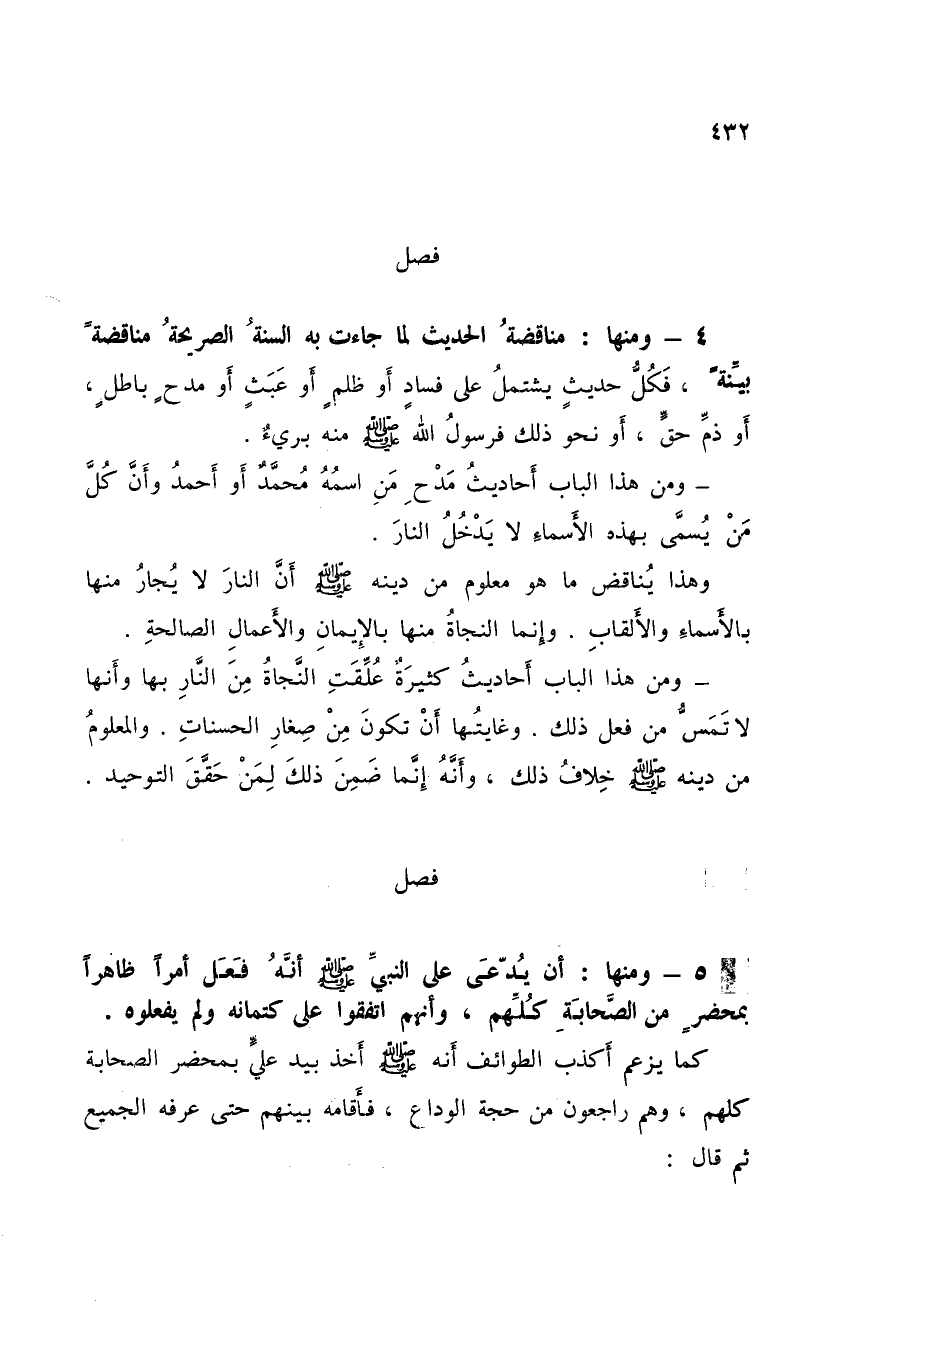 ٤٣٢
فصل
٤ – ومنها : مناقضةُ الحديث لما جاءت به السنةُ الصريحةُ مناقضةً
بيِّنةً ، فَكُلُّ حديثٍ يشتملُ على فسادٍ أو ظلمٍ أو عَبَثٍ أو مدحٍ باطلٍ ،
أو ذمِّ حقٍّ ، أو نحو ذلك فرسولُ الله ﷺ منه بريءٌ .
– ومن هذا الباب أحاديثُ مَدْحِ مَنِ اسمُهُ مُحمَّدٌ أو أحمدُ وأنَّ كُلَّ
مَنْ يُسمَّى بهذه الأسماءِ لا يَدْخُلُ النارَ .
وهذا يُناقض ما هو معلوم من دينه ﷺ أنَّ النارَ لا يُجارُ منها
بالأسماءِ والألقابِ . وإنما النجاةُ منها بالإيمانِ والأعمالِ الصالحةِ .
– ومن هذا الباب أحاديثُ كثيرَةٌ عُلِّقَتِ النَّجاةُ مِنَ النَّارِ بها وأنها
لا تَمَسُّ من فعل ذلك . وغايتُها أنْ تكونَ مِنْ صِغارِ الحسناتِ . والمعلومُ
من دينه ﷺ خِلافُ ذلك ، وأنَّهُ إنَّما ضَمِنَ ذلكَ لِمَنْ حَقَّقَ التوحيد .
فصل
٥ – ومنها : أن يُدّعَى على النبيِّ ﷺ أنَّهُ فَعَل أمراً ظاهراً
بمحضرٍ من الصَّحابَةِ كُلِّهم ، وأنهم اتفقوا على كتمانه ولم يفعلوه .
كما يزعم أكذب الطوائف أنه ﷺ أخذ بيد عليٍّ بمحضر الصحابة
كلهم ، وهم راجعون من حجة الوداع ، فأقامه بينهم حتى عرفه الجميع
ثم قال :